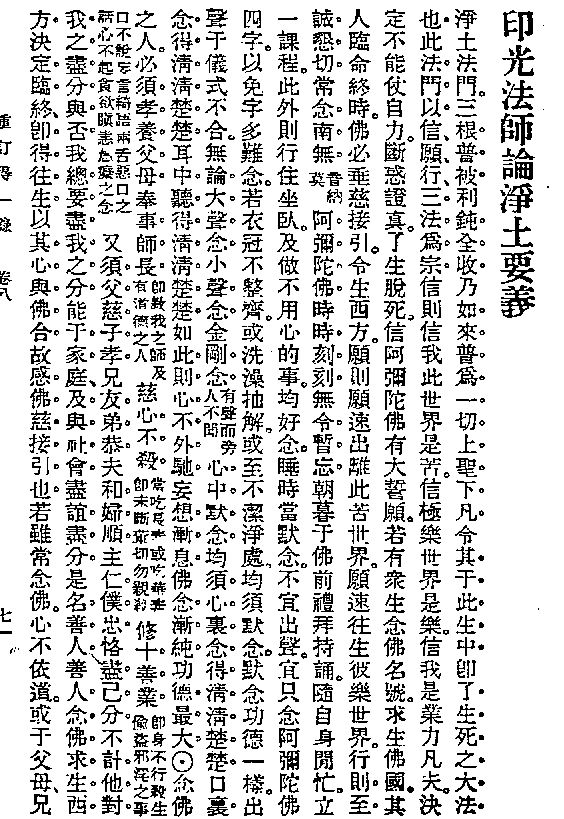 印光法師論淨土要義
淨土法門。三根普被。利鈍全收。乃如來普爲一切上聖下凡。令其于此生中。卽了生死之大法
也。此法門以信願行三法爲宗。信則信我此世界是苦。信極樂世界是樂。信我是業力凡夫。決
定不能仗自力。斷惑證眞。了生脫死。信阿彌陀佛有大誓願。若有衆生念佛名號。求生佛國。其
人臨命終時。佛必垂慈接引。令生西方。願則願遠出離此苦世界。願速往生彼樂世界。行則至
誠懇切。常念南無音納莫阿彌陀佛。時時刻刻。無令暫忘。朝暮于佛前禮拜持誦。隨自身閒忙。立
一課程。此外則行住坐臥。及做不用心的事。均好念。睡時當默念。不宜出聲。宜只念阿彌陀佛
四字。以免字多難念。若衣冠不整齊。或洗澡抽解。或至不潔淨處。均須默念。默念功德一樣。出
聲于儀式不合。無論大聲念。小聲念。金剛念。有聲而旁人不聞心中默念。均須心裏念得淸淸楚楚。口裏
念得淸淸楚楚。耳中聽得淸淸楚楚。如此則心不外馳。妄想漸息。佛念漸純。功德最大。⊙念佛
之人。必須孝養父母。奉事師長。卽敎我之師及有道德之人慈心不殺。當吃長素或吃華素卽未斷葷切勿親殺修十善業。卽身不行殺生偷盜邪淫之事
口不說妄言綺語兩舌惡口之話心不起貪欲瞋恚愚癡之念又須父慈子孝。兄友弟恭。夫和婦順。主仁僕忠。恪盡己分。不計他對
我之盡分與否。我總要盡我之分。能于家庭。及與社會。盡誼盡分。是名善人。善人念佛求生西
方。決定臨終。卽得往生。以其心與佛合。故感佛慈接引也。若雖常念佛。心不依道。或于父母兄
重訂尋一錄　卷八　　七一